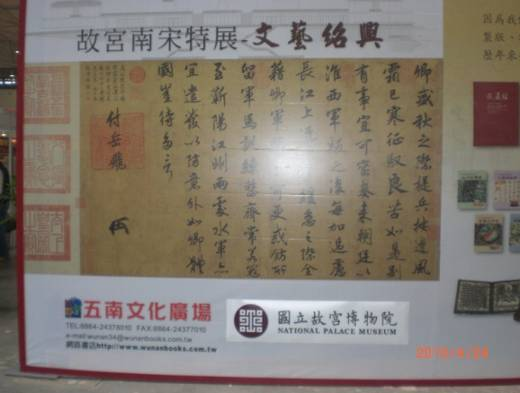 故宮南宋特展-文藝紹興
卿盛秋之際提兵按邊風
霜已寒征馭良苦如是別
有事宜可密奏來朝廷以
淮西軍叛之後每加過慮
長江上流一帶緩急之際全
藉卿軍照管可更戒飭所
留軍馬訓練整齊常若寇
至蘄陽江州兩處水軍亦
宜遣發以防意外如卿體
國豈待多言
付岳飛
因為我
製版、
歷年來
五南文化廣場
TEL:6864-24378010 FAX:6864-24377010
e-mail:wunan34@wunanbooks.com.tw
網路書店http://www.wunanbooks.com.tw
國立故宮博物院
NATIONAL PALACE MUSEUM
2010/4/24